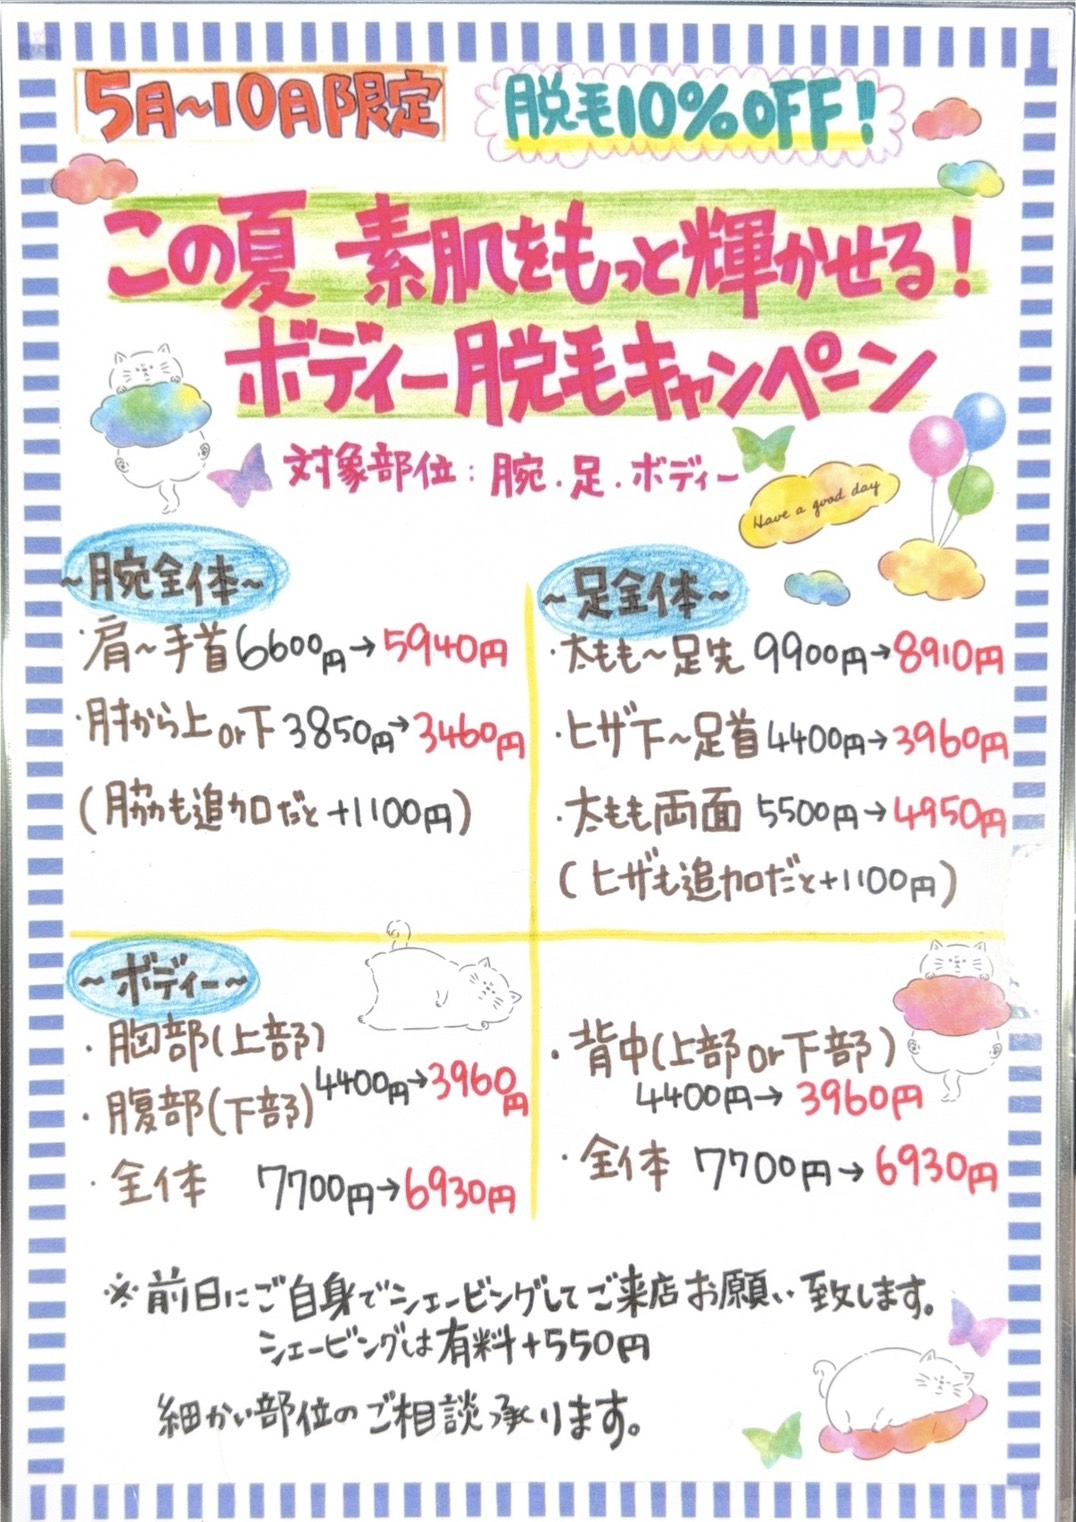 5月~10月限定
脱毛10%OFF!
この夏 素肌をもっと輝かせる!
ボディー脱毛キャンペーン
対象部位:腕.足.ボディー
Have a good day
~腕全体~
・肩~手首 6600円→5940円
・肘から上or下 3850円→3460円
(脇も追加だと+1100円)
~足全体~
・太もも~足先 9900円→8910円
・ヒザ下~足首 4400円→3960円
・太もも両面 5500円→4950円
(ヒザも追加だと+1100円)
~ボディー~
・胸部(上部)
・腹部(下部) 4400円→3960円
・全体 7700円→6930円
・背中(上部or下部)
4400円→3960円
・全体 7700円→6930円
※前日にご自身でシェービングしてご来店お願い致します。
シェービングは有料+550円
細かい部位のご相談承ります。